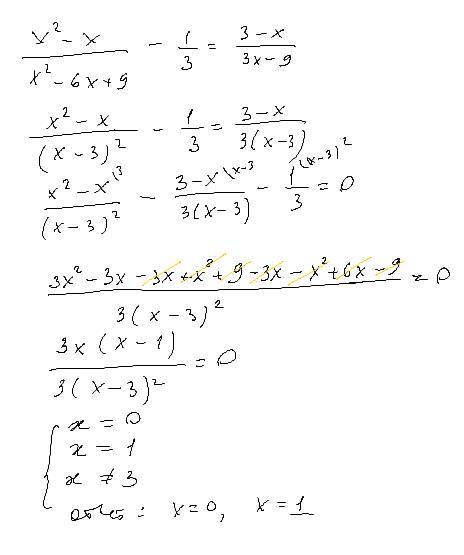 x² - x / x² - 6x + 9 - 1/3 = 3 - x / 3x - 9
x² - x / (x - 3)² - 1/3 = 3 - x / 3(x - 3)
x² - x \3 / (x - 3)² - 3 - x \x - 3 / 3(x - 3) - 1 \(x - 3)² / 3 = 0
3x² - 3x - 3x + x² + 9 - 3x - x² + 6x - 9 / 3(x - 3)² = 0
3x(x - 1) / 3(x - 3)² = 0
x = 0
x = 1
x ≠ 3
x = 0, x = 1